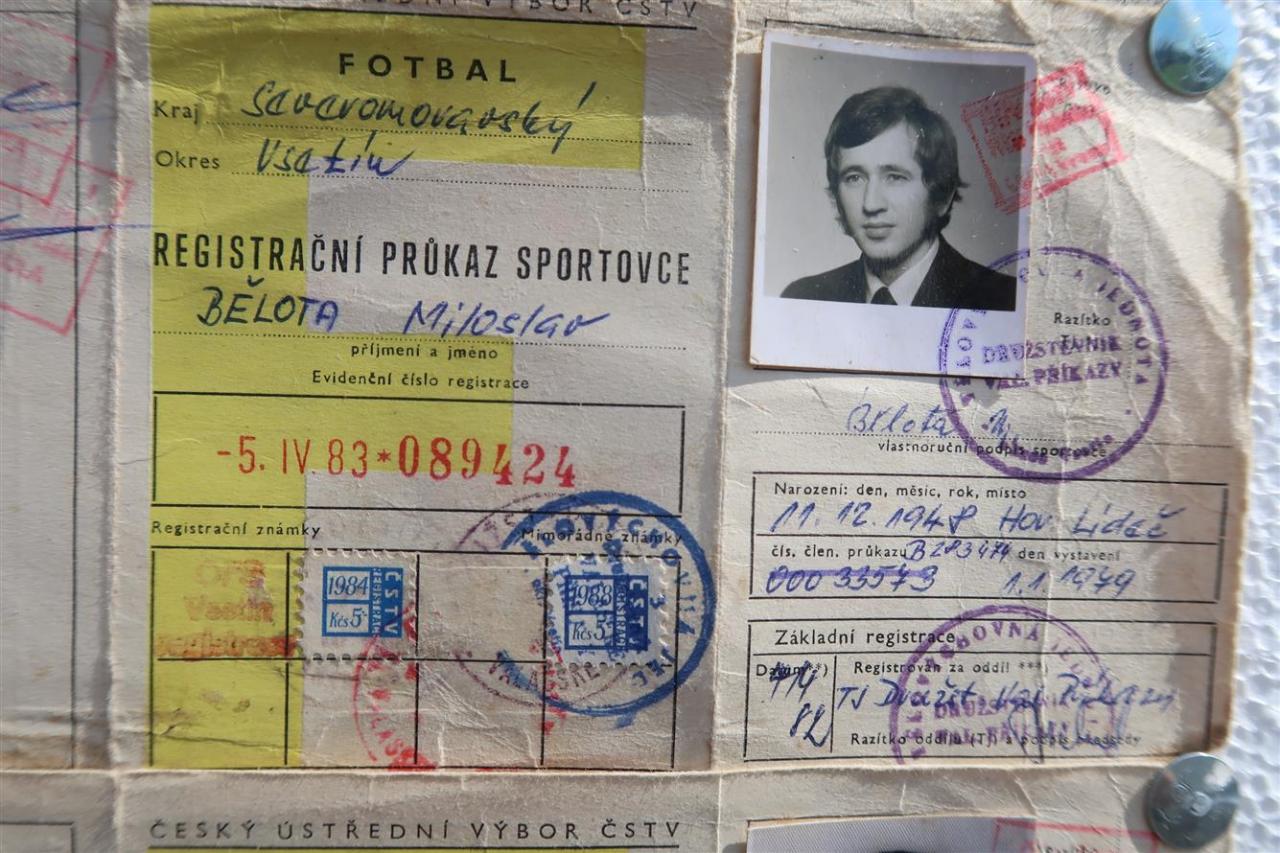 VÝBOR ČSTV
FOTBAL
Kraj Severomoravský
Okres Vsetín
REGISTRAČNÍ PRŮKAZ SPORTOVCE
BĚLOTA Miloslav
příjmení a jméno
Evidenční číslo registrace
-5. IV. 83*089424
Registrační známky
Mimořádné známky
OFS
Vsetín
1984
Kčs 5
ČSTV
REGISTRACE
1983
Kčs 5
ČSTV
REGISTRACE
JEDNOTA
Razítko
DRUŽSTEVNÍK
VAL. PŘÍKAZY
Bělota M.
vlastnoruční podpis sportovce
Narození: den, měsíc, rok, místo
11. 12. 1948 Hor. Lideč
čís. člen. průkazu B 283474 den vystavení
000 33573 1.1.1979
Základní registrace
Datum **) Registrován za oddíl ***)
82 TJ Družst. Val. Příkazy
Razítko oddílu (TJ) a podpis předsedy
ČESKÝ ÚSTŘEDNÍ VÝBOR ČSTV